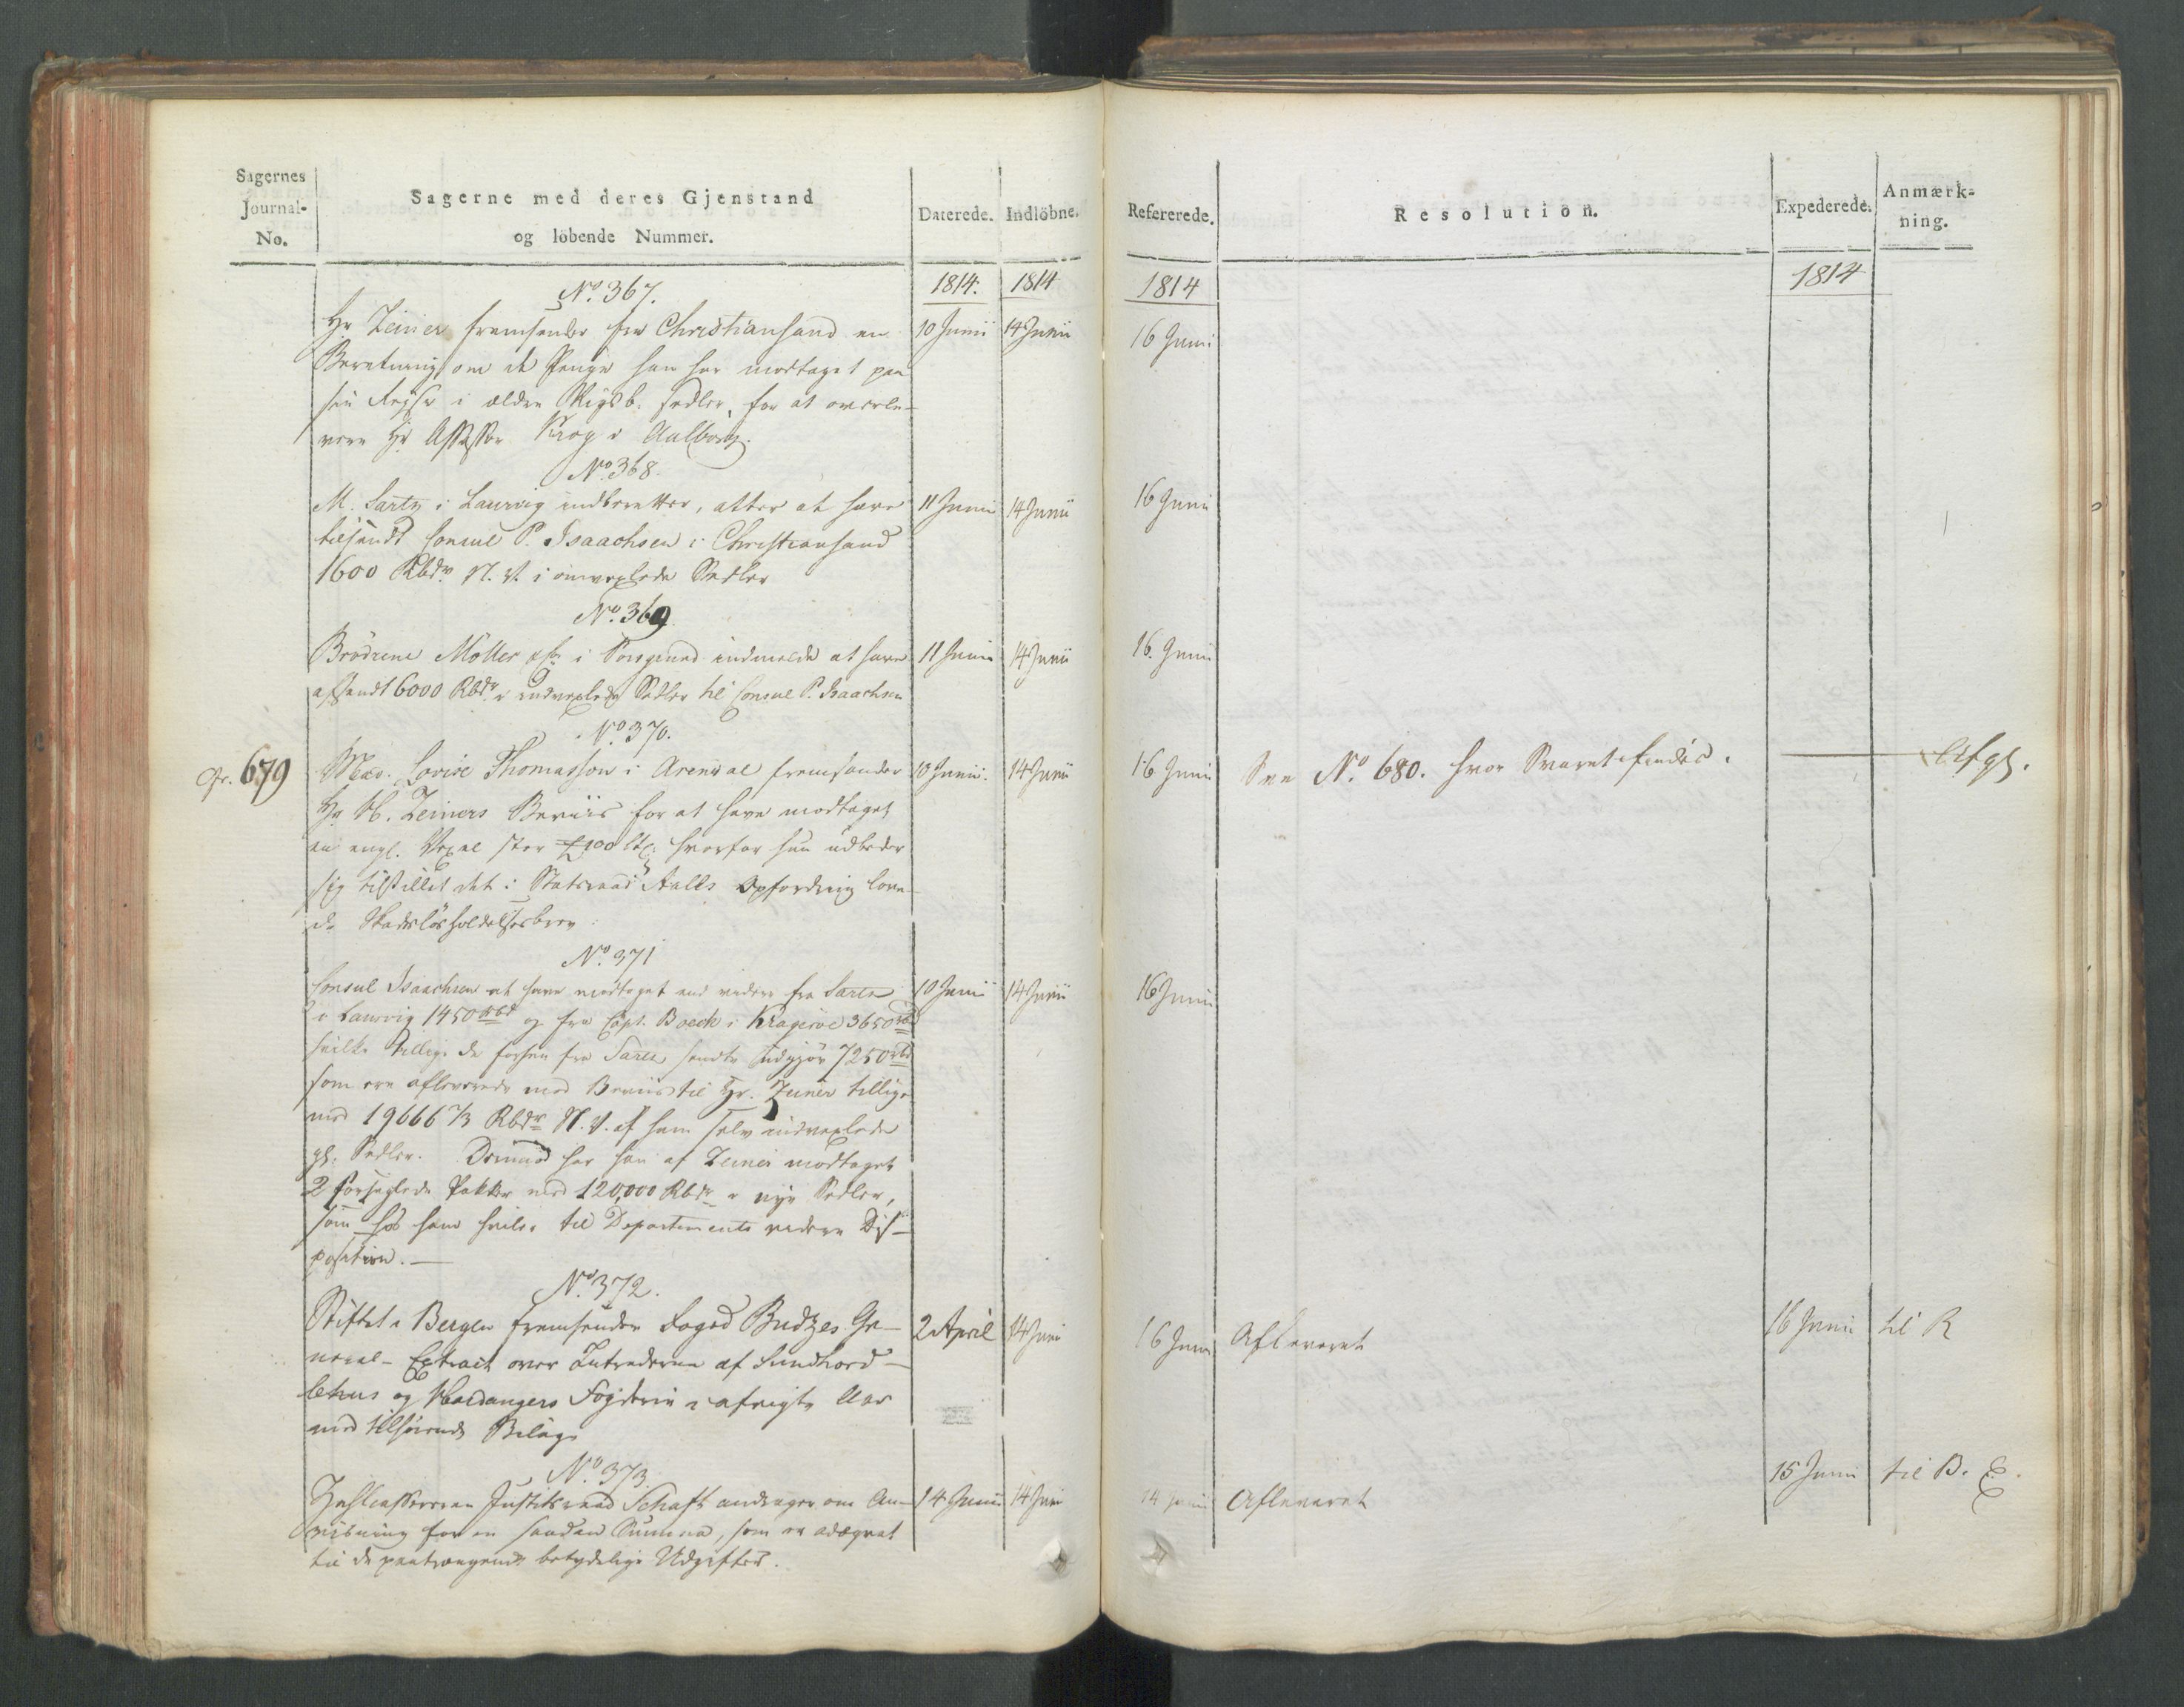 Sagernes
Journal-
No.
Sagerne med deres Gjenstand
og löbende Nummer.
Daterede.
Indlöbne.
Refererede.
Resolution.
Expederede.
Anmærk-
ning.
1814.
1814
1814
1814
No. 367.
Hr Zeiner fremsender fra Christiansand en
Beretning om de Penge han har modtaget paa
sin Rejse i ældre Rigsb: Sedler, for at overle-
vere Hr Assessor Krog i Aalborg.
10 Junii
14 Junii
16 Juni
No. 368.
M. Sartz i Laurvig indberetter, atter at have
tilsendt Consul P. Isaachsen i Christiansand
1600 Rbdr N. V. i omvexlede Sedler
11 Junii
14 Junii
16 Junii
No. 369.
Brödrene Möller i Porsgrund indmelde at have
afsendt 6000 Rbdr i indvexlede Sedler til Consul P. Isaachsen
11 Junii
14 Junii
16. Junii
No 370.
679
Mad. Lovise Thomasson i Arendal fremsender
Hr H. Zeiners Beviis for at have modtaget
en engl. Vexel stor £ 100 hvorfor hun udbeder
sig tilstillet det i Statsraad Aalls Opfordring love-
de Skadeslösholdelsesbrev.
10 Junii.
14 Junii
16 Junii
See No. 680. hvor Svaret findes.
Afg.
No. 371
Consul Isaachsen at have modtaget end videre fra Sartz
i Laurvig 1450 Rbd og fra Capt. Boeck i Krageröe 3650 rbd
hvilke tillige de forhen fra Sartz sendte udgjör 7250 rbd
som ere afleverede mod Beviis til Hr. Zeiner tillige
med 19666 2/3 Rbdr N. V. af ham selv indvexlede
gl. Sedler. Derimod har han af Zeiner modtaget
2 forseglede Pakker med 120,000 Rbdr i nye Sedler,
som hos ham hvile til Departements videre Dis-
position.
10 Junii
14 Junii
16 Junii
No. 372.
Stiftet i Bergen fremsender Foged Budtzes Ge-
neral-Extract over Intraderne af Sundhord-
lehns og Hardangers Fogderie i afvigte Aar
med tilhörende Bilage
2 April
14 Juni
16 Juni
Afleveret
16 Junii
til R
No. 373.
Zahlcasserer Justitsraad Schaft andrager om An-
viisning for en saadan Summa, som er adæqvat
til de paatrængende betydelige Udgifter.
14 Junii
14 Juni
14 Junii
Afleveret
15 Juni
til B. C.